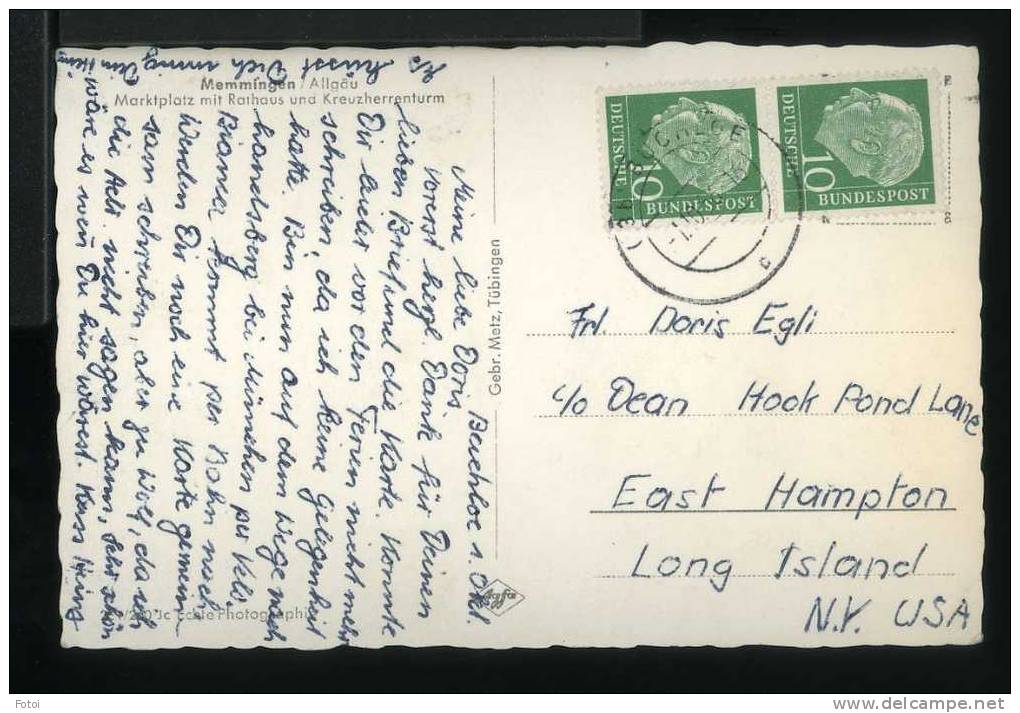 Memmingen / Allgäu
Marktplatz mit Rathaus und Kreuzherrenturm
Buchloe 1. Okt.
Meine liebe Doris
Vorerst herzl. Dank für Deinen
lieben Brief und die Karte. Konnte
Dir leider vor den Ferien nicht mehr
schreiben, da ich keine Gelegenheit
hatte. Bin nun auf dem Wege nach
bei München per Velo.
kommt per Bahn nach
Werden Dir noch eine Karte gemein
sam schreiben, aber zu Wolf, da ich
die Adr. nicht sagen kann, sehr schön
wäre es wenn Du hier wärest.
grüsst Dich innig Dein Heinz
Gebr. Metz, Tübingen
Agfa
Jc Echte Photographie
DEUTSCHE
10
BUNDESPOST
DEUTSCHE
10
BUNDESPOST
c
Frl. Doris Egli
c/o Dean Hook Pond Lane
East Hampton
Long Island
N.Y. USA
Fotoi
www.delcampe.net